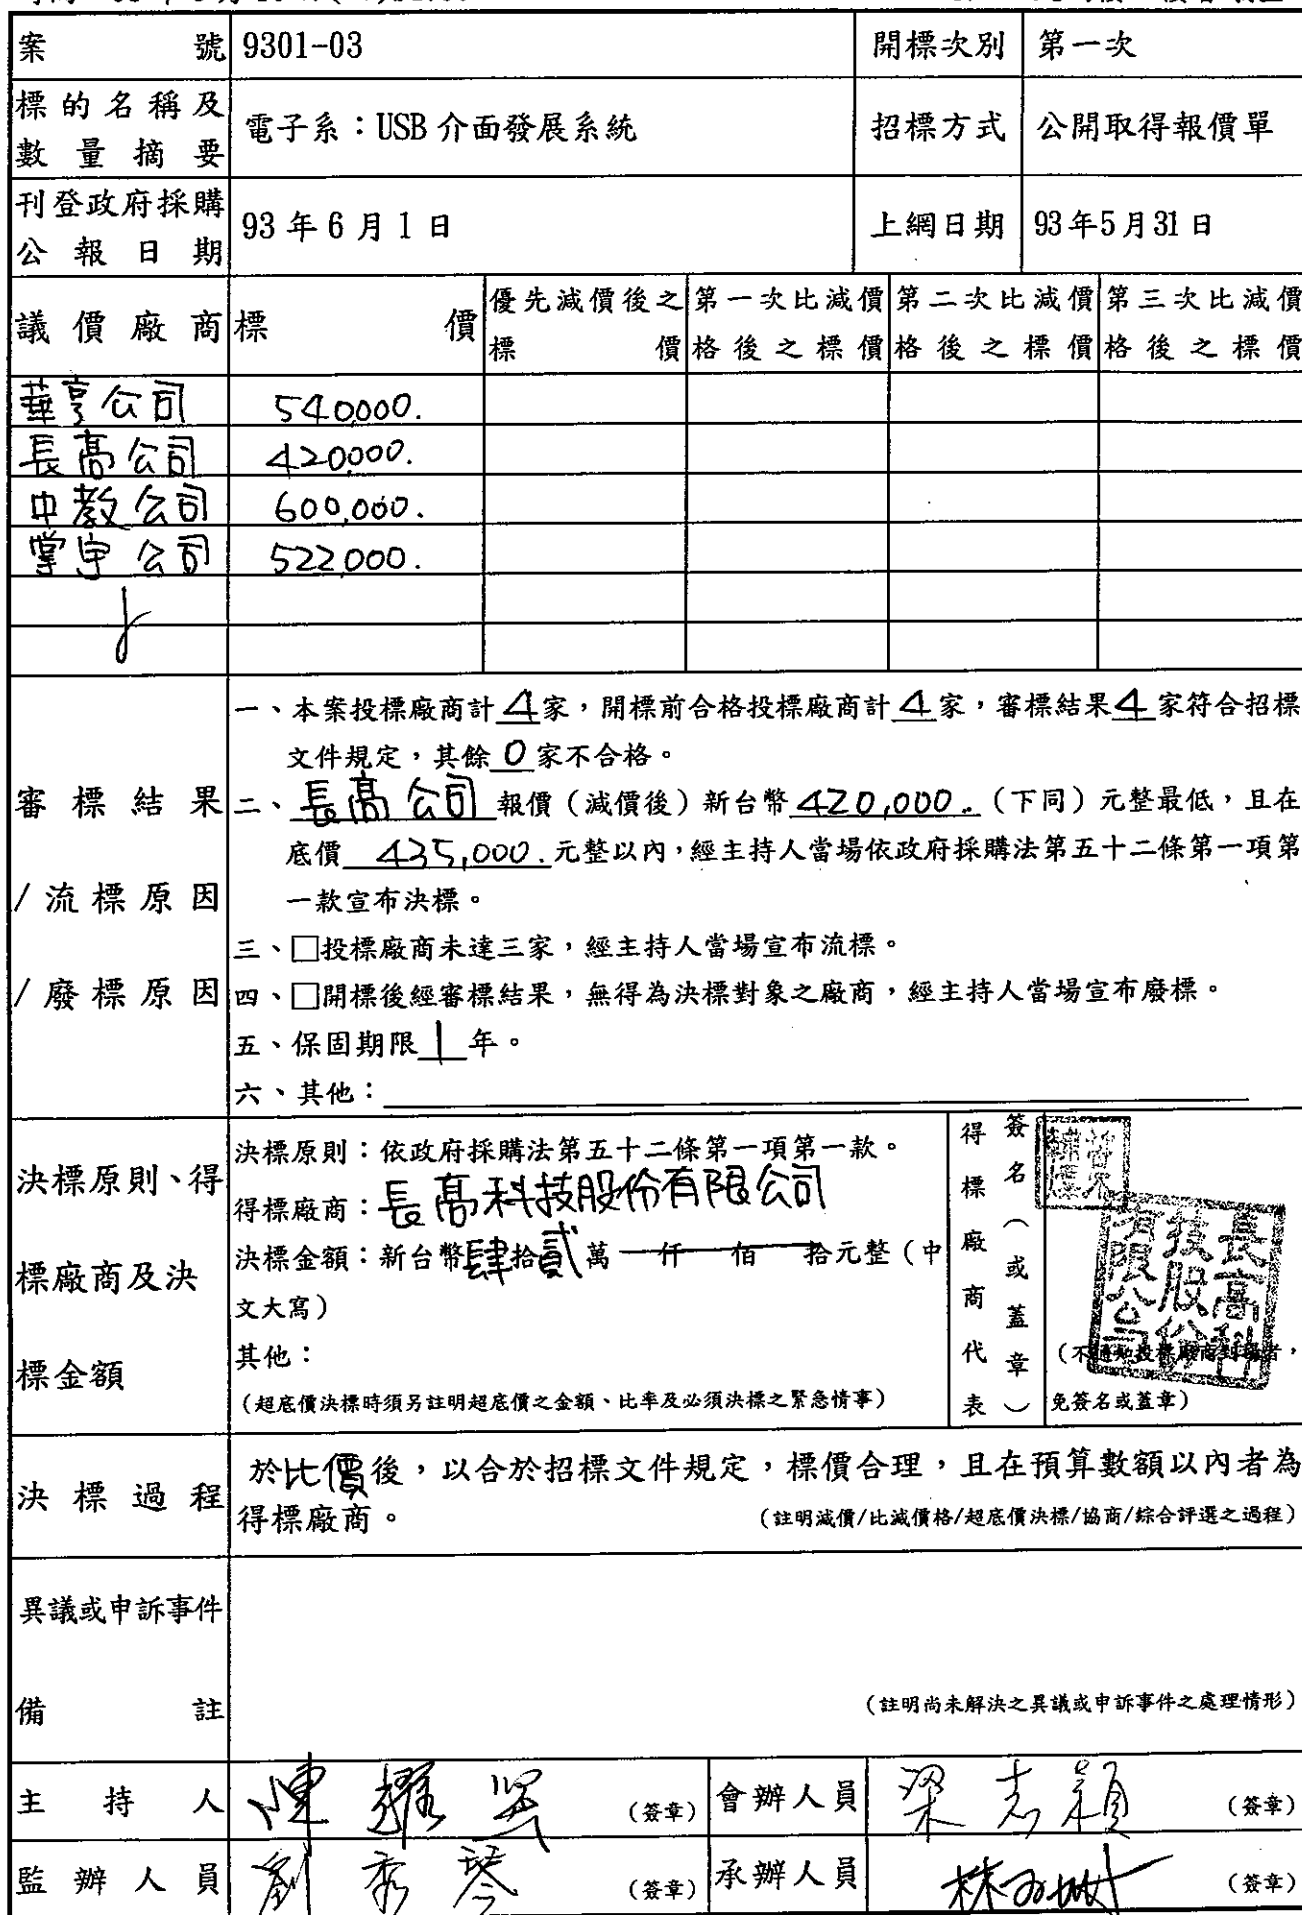 案號 9301-03 開標次別 第一次
標的名稱及數量摘要 電子系：USB 介面發展系統 招標方式 公開取得報價單
刊登政府採購公報日期 93 年 6 月 1 日 上網日期 93年5月31日
議價廠商 標價 優先減價後之標價 第一次比減價格後之標價 第二次比減價格後之標價 第三次比減價格後之標價
華亨公司 540,000.
長高公司 420,000.
中教公司 600,000.
掌宇公司 522,000.
審標結果
/流標原因
/廢標原因
一、本案投標廠商計4家，開標前合格投標廠商計4家，審標結果4家符合招標
文件規定，其餘0家不合格。
二、長高公司報價（減價後）新台幣420,000.（下同）元整最低，且在
底價435,000.元整以內，經主持人當場依政府採購法第五十二條第一項第
一款宣布決標。
三、□投標廠商未達三家，經主持人當場宣布流標。
四、□開標後經審標結果，無得為決標對象之廠商，經主持人當場宣布廢標。
五、保固期限1年。
六、其他：
決標原則、得
標廠商及決
標金額
決標原則：依政府採購法第五十二條第一項第一款。
得標廠商：長高科技股份有限公司
決標金額：新台幣肆拾貳萬仟佰拾元整（中
文大寫）
其他：
（超底價決標時須另註明超底價之金額、比率及必須決標之緊急情事）
得標廠商代表
簽名（或蓋章）
長高科技股份有限公司
（不通知投標廠商到場者，
免簽名或蓋章）
決標過程
於比價後，以合於招標文件規定，標價合理，且在預算數額以內者為
得標廠商。 （註明減價/比減價格/超底價決標/協商/綜合評選之過程）
異議或申訴事件
備註
（註明尚未解決之異議或申訴事件之處理情形）
主持人 （簽章） 會辦人員 梁志穎 （簽章）
監辦人員 劉秀琴 （簽章） 承辦人員 （簽章）